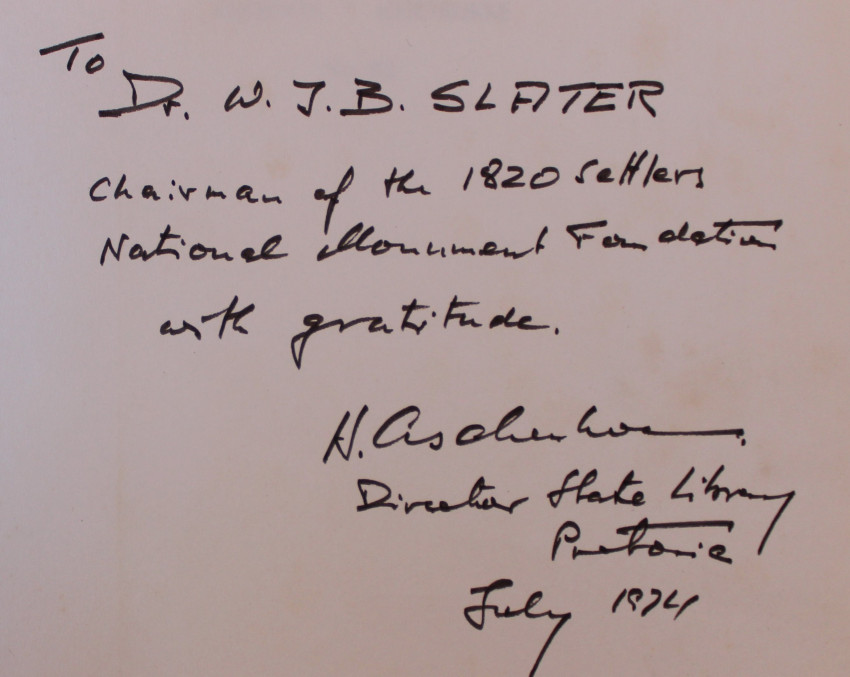 To
Dr. W. J. B. SLATER
Chairman of the 1820 Settlers
National Monument Foundation
with gratitude.
H. Aschenborn.
Director State Library
Pretoria
July 1974